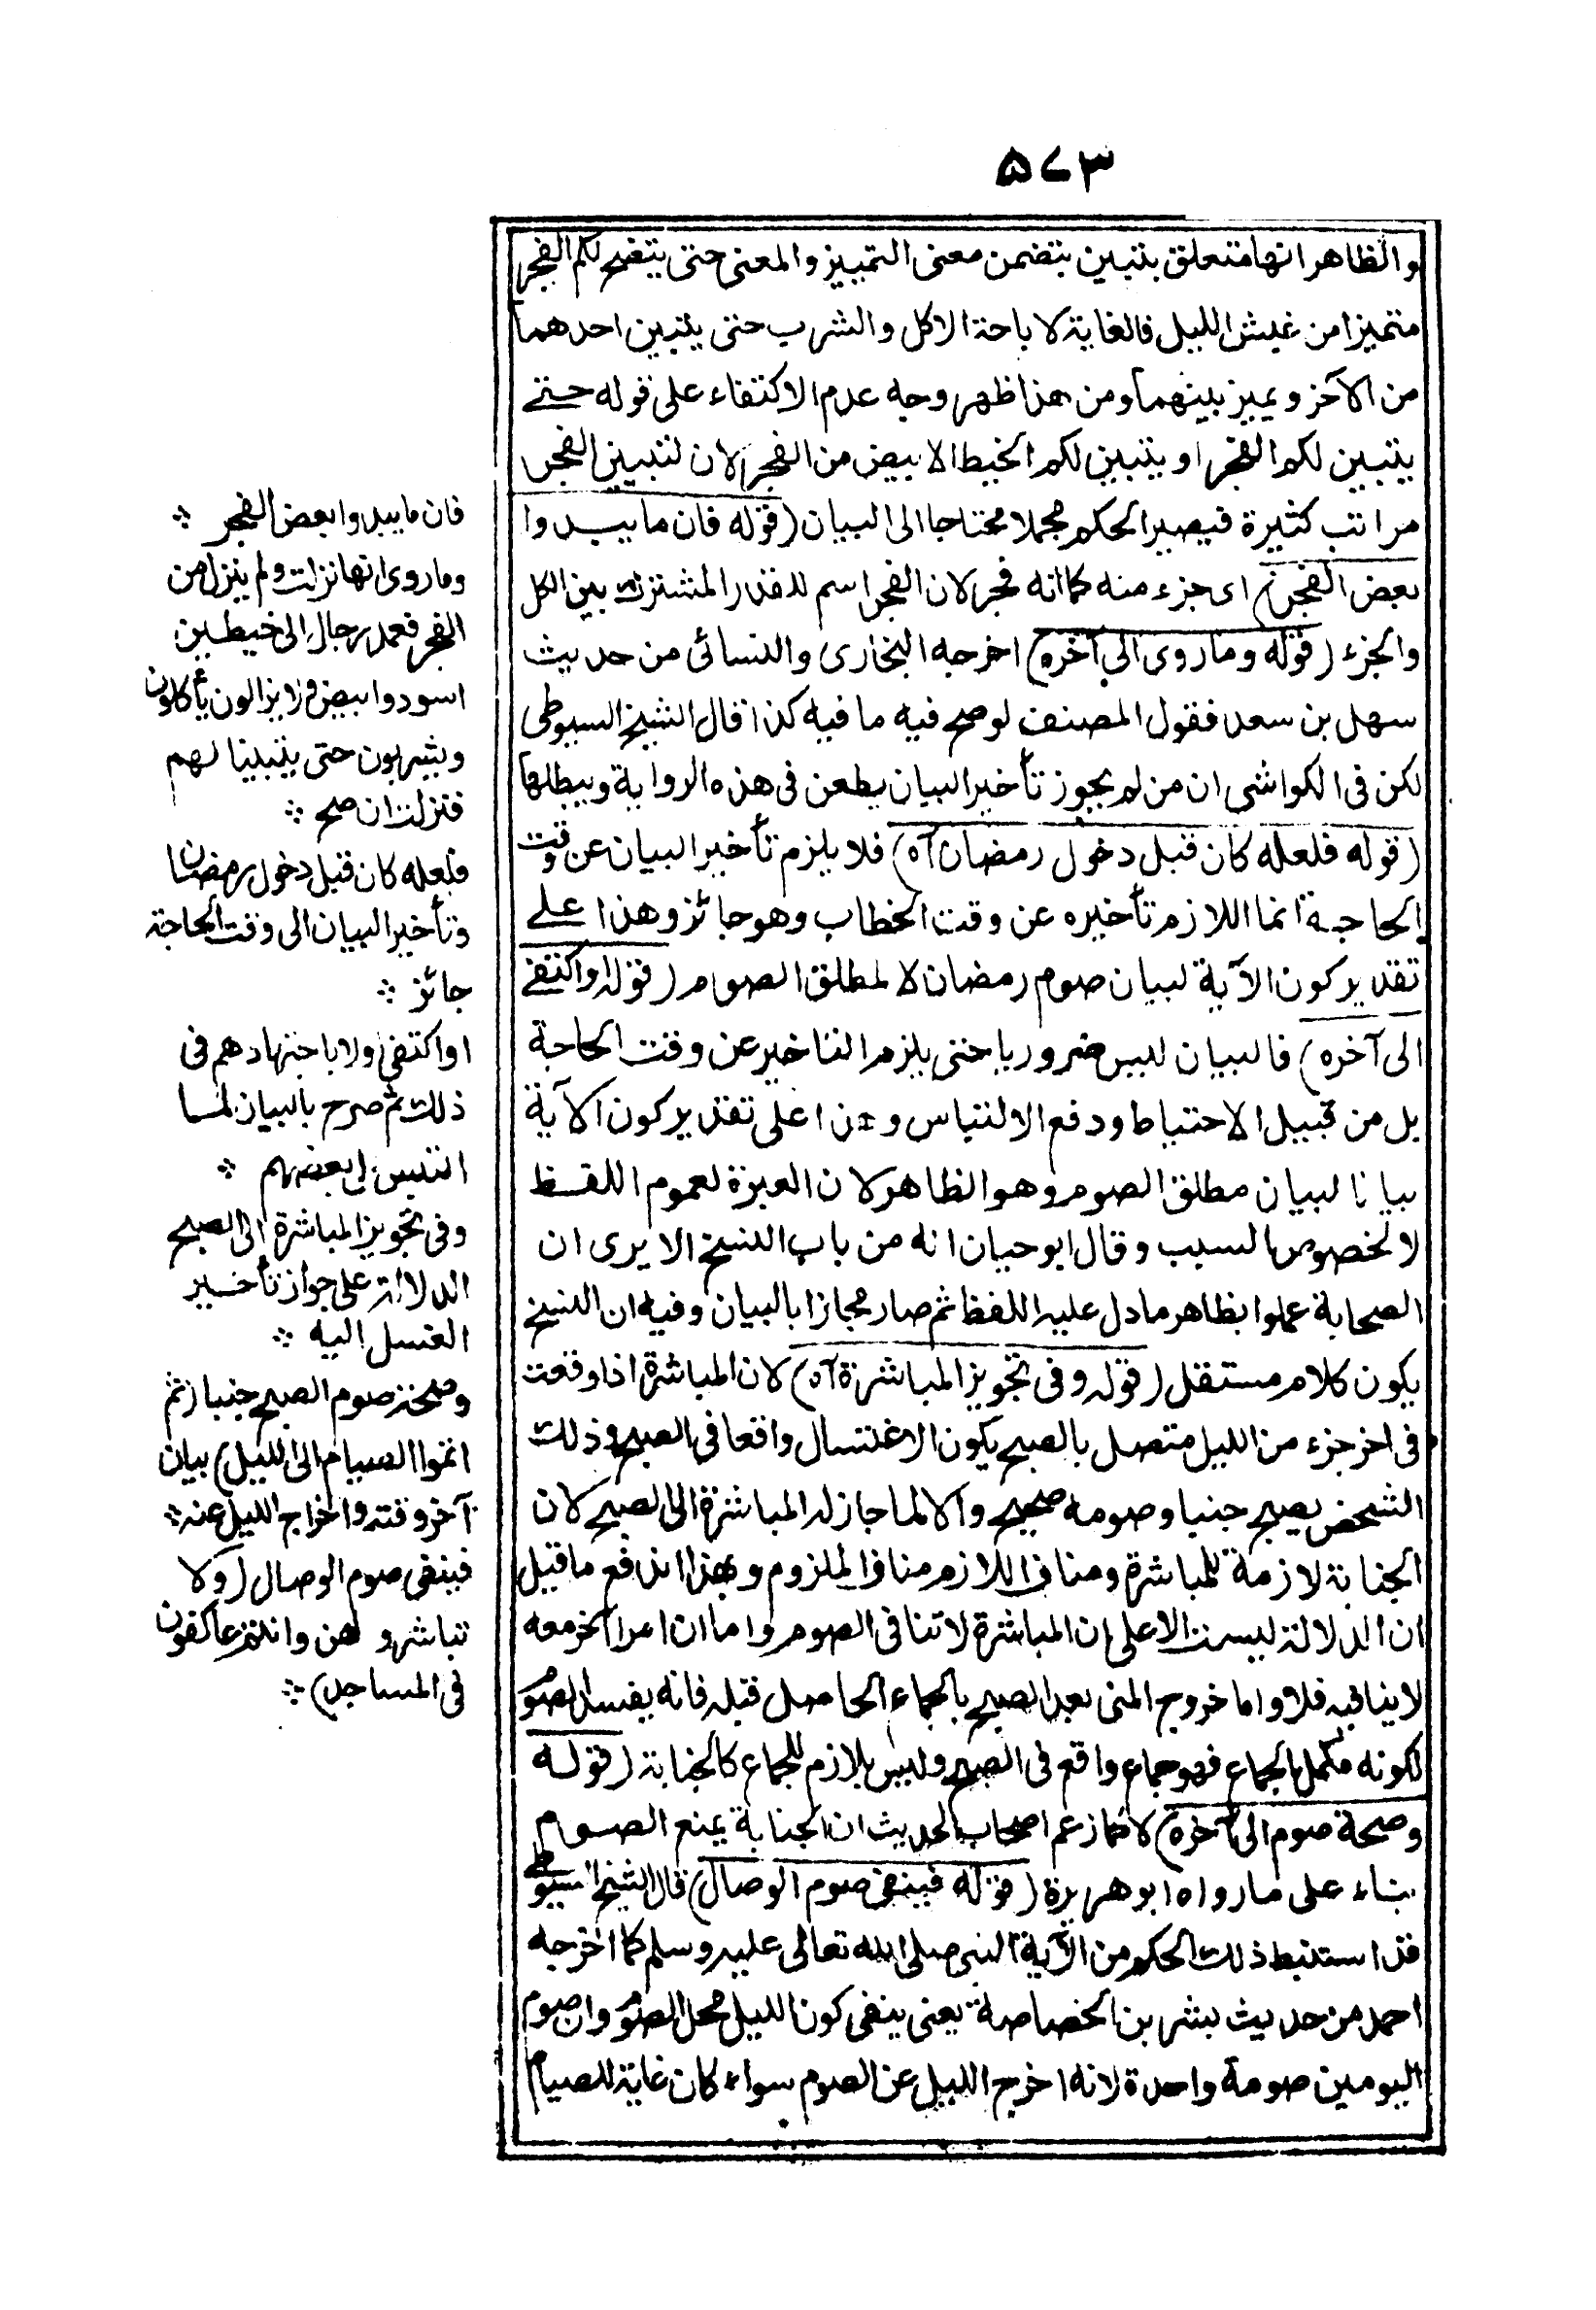 ۵۷۳
والظاهر انها متعلق بيتبين بتضمن معنى التمييز والمعنى حتى يتضح لكم الفجر
متميزا من غبش الليل فالغاية لاباحة الاكل والشرب حتى يتبين احدهما
من الآخر ويميز بينهما ومن هذا ظهر وجه عدم الاكتفاء على قوله حتى
يتبين لكم الفجر او يتبين لكم الخيط الابيض من الفجر لان لتبيين الفجر
مراتب كثيرة فيصير الحكم مجملا محتاجا الى البيان (قوله فان ما يبدوا
بعض الفجر) اى جزء منه كما انه فجر لان الفجر اسم للقدر المشترك بين الكل
والجزء (قوله وما روى الى آخره) اخرجه البخارى والنسائى من حديث
سهل بن سعد فقول المصنف لو صح فيه ما فيه كذا قال الشيخ السيوطى
لكن فى الكواشى ان من لم يجوز تأخير البيان يطعن فى هذه الرواية ويبطلها
(قوله فلعله كان قبل دخول رمضان آه) فلا يلزم تأخير البيان عن وقت
الحاجة انما اللازم تأخيره عن وقت الخطاب وهو جائز وهذا على
تقدير كون الآية لبيان صوم رمضان لا لمطلق الصوم (قوله او اكتفى
الى آخره) فالبيان ليس ضروريا حتى يلزم التاخير عن وقت الحاجة
بل من قبيل الاحتياط ودفع الالتباس وهذا على تقدير كون الآية
بيانا لبيان مطلق الصوم وهو الظاهر لان العبرة لعموم اللفظ
لا لخصوص السبب وقال ابو حيان انه من باب النسخ الا يرى ان
الصحابة عملوا بظاهر ما دل عليه اللفظ ثم صار مجازا بالبيان وفيه ان النسخ
يكون كلام مستقل (قوله وفى تجويز المباشرة آه) لان المباشرة اذا وقعت
فى اخر جزء من الليل متصل بالصبح يكون الاغتسال واقعا فى الصبح وذلك
الشخص يصبح جنبا وصومه صحيح والا لما جاز له المباشرة الى الصبح لان
الجنابة لازمة للمباشرة ومنافى اللازم مناف الملزوم وبهذا اندفع ما قيل
ان الدلالة ليست الا على ان المباشرة لا تنافى الصوم واما ان امرا آخر معه
لا ينافيه فلا واما خروج المنى بعد الصبح بالجماع الحاصل قبله فانه يفسد الصوم
لكونه مكمل الجماع فهو جماع واقع فى الصبح وليس بلازم للجماع كالجنابة (قوله
وصحة صوم الى آخره) لا كما زعم اصحاب الحديث ان الجنابة يمنع الصوم
بناء على ما رواه ابو هريرة (قوله فينفى صوم الوصال) قال الشيخ السيوطى
قد استنبط ذلك الحكم من الآية النبى صلى الله تعالى عليه وسلم كما اخرجه
احمد من حديث بشر بن الخصاصة يعنى ينفى كون الليل محل الصوم وان صوم
اليومين صومة واحدة لانه اخرج الليل عن الصوم سواء كان غاية للصيام
فان ما يبدوا بعض الفجر
وما روى انها نزلت ولم ينزل من
الفجر فعمد رجال الى خيطين
اسود وابيض ولا يزالون يأكلون
ويشربون حتى يتبينا لهم
فنزلت ان صح
فلعله كان قبل دخول رمضان
وتأخير البيان الى وقت الحاجة
جائز
او اكتفى اولا باجتهادهم فى
ذلك ثم صرح بالبيان لما
التبس على بعضهم
وفى تجويز المباشرة الى الصبح
الدلالة على جواز تأخير
الغسل اليه
وصحة صوم المصبح جنبا (ثم
اتموا الصيام الى الليل) بيان
آخر وقته واخراج الليل عنه
فينفى صوم الوصال (ولا
تباشروهن وانتم عاكفون
فى المساجد)